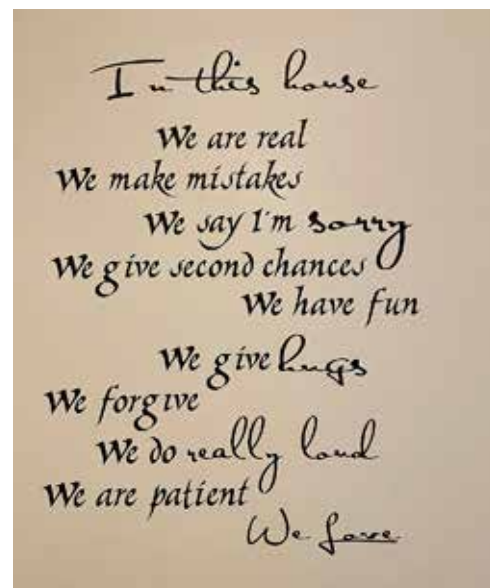 In this house
We are real
We make mistakes
We say I'm sorry
We give second chances
We have fun
We give hugs
We forgive
We do really loud
We are patient
We love